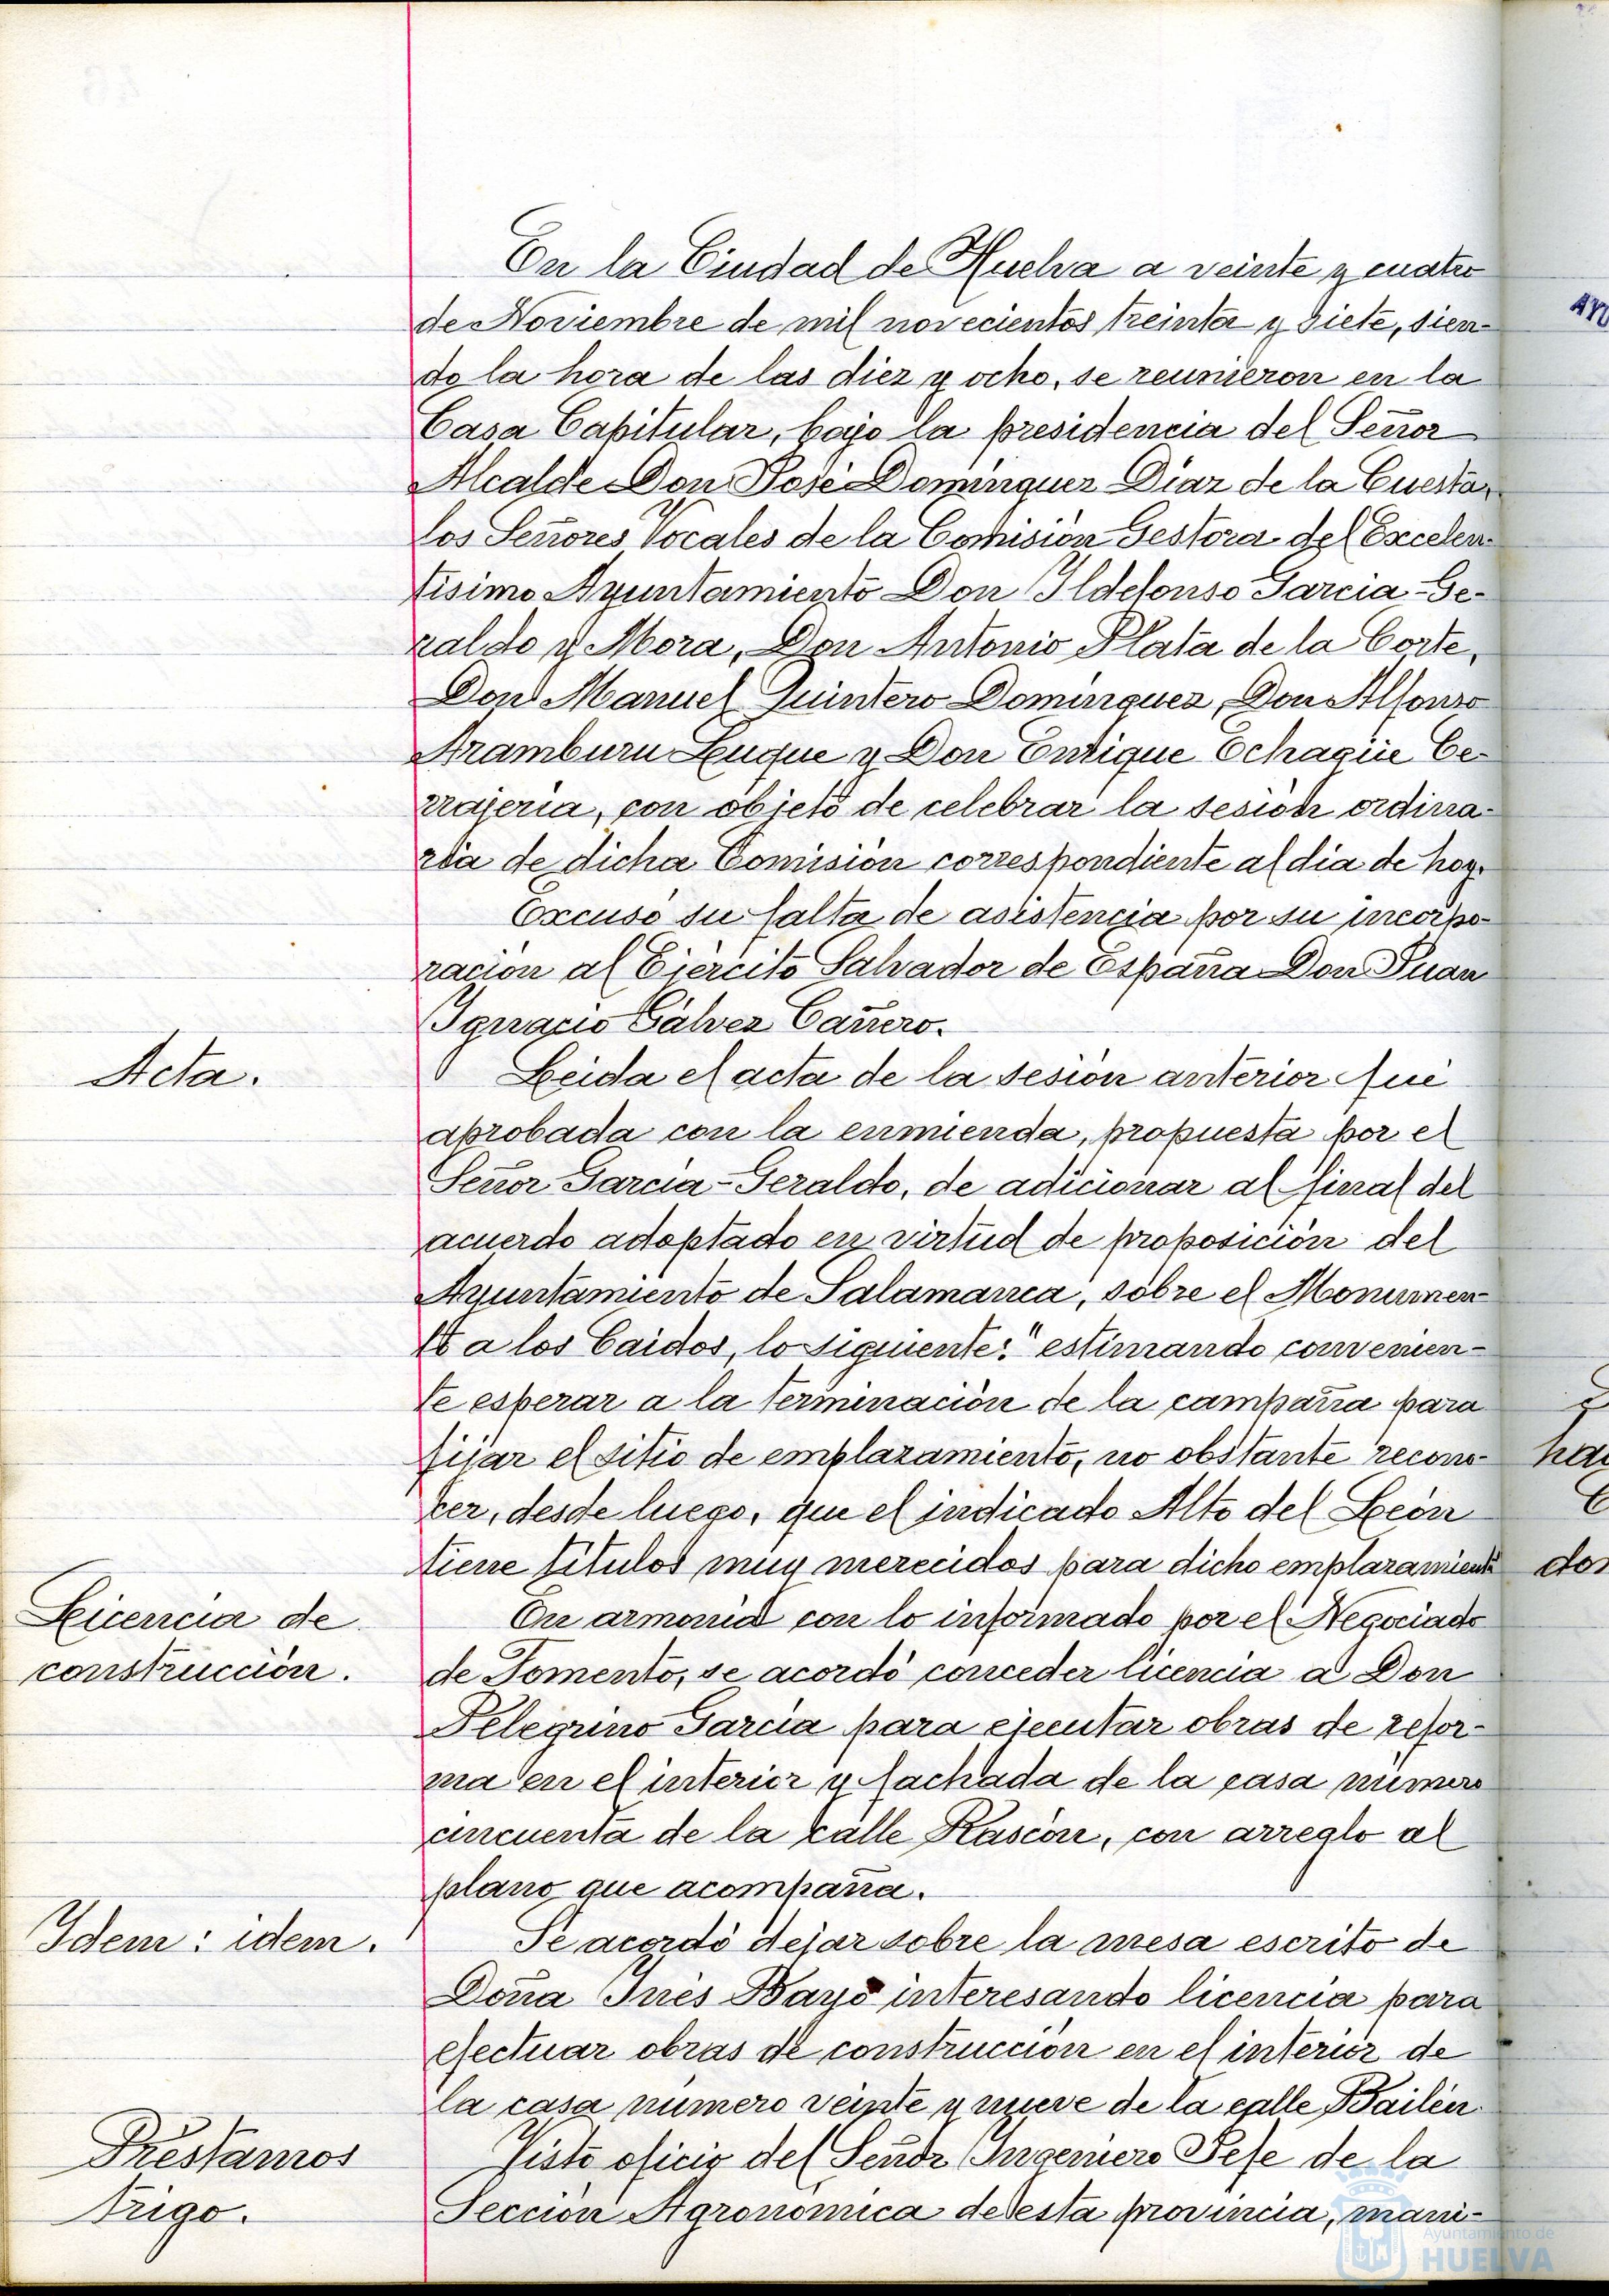 En la Ciudad de Huelva a veinte y cuatro
de Noviembre de mil novecientos treinta y siete, sien-
do la hora de las diez y ocho, se reunieron en la
Casa Capitular, bajo la presidencia del Señor
Alcalde Don José Dominguez Diaz de la Cuesta,
los Señores Vocales de la Comisión Gestora del Excelen-
tisimo Ayuntamiento Don Ildefonso Garcia-Ge-
raldo y Mora, Don Antonio Plata de la Corte,
Don Manuel Quintero Dominguez, Don Alfonso
Aramburu Luque y Don Enrique Echagüe Ce-
rrajeria, con objeto de celebrar la sesión ordina-
ria de dicha Comisión correspondiente al dia de hoy.
Excusó su falta de asistencia por su incorpo-
ración al Ejército Salvador de España Don Juan
Ignacio Gálvez Cañero.
Acta.
Leida el acta de la sesión anterior fué
aprobada con la enmienda, propuesta por el
Señor Garcia-Geraldo, de adicionar al final del
acuerdo adoptado en virtud de proposición del
Ayuntamiento de Salamanca, sobre el Monumen-
to a los Caidos, lo siguiente: "estimando convenien-
te esperar a la terminación de la campaña para
fijar el sitio de emplazamiento, no obstante recono-
cer, desde luego, que el indicado Alto del León
tiene titulos muy merecidos para dicho emplazamiento
Licencia de
construcción.
En armonia con lo informado por el Negociado
de Fomento, se acordó conceder licencia a Don
Pelegrino Garcia para ejecutar obras de refor-
ma en el interior y fachada de la casa número
cincuenta de la calle Rascón, con arreglo al
plano que acompaña.
Idem: idem.
Se acordó dejar sobre la mesa escrito de
Doña Inés Bayo interesando licencia para
efectuar obras de construcción en el interior de
la casa número veinte y nueve de la calle Bailén.
Préstamos
trigo.
Visto oficio del Señor Ingeniero Jefe de la
Sección Agronómica de esta provincia, mani-
Ayuntamiento de
HUELVA